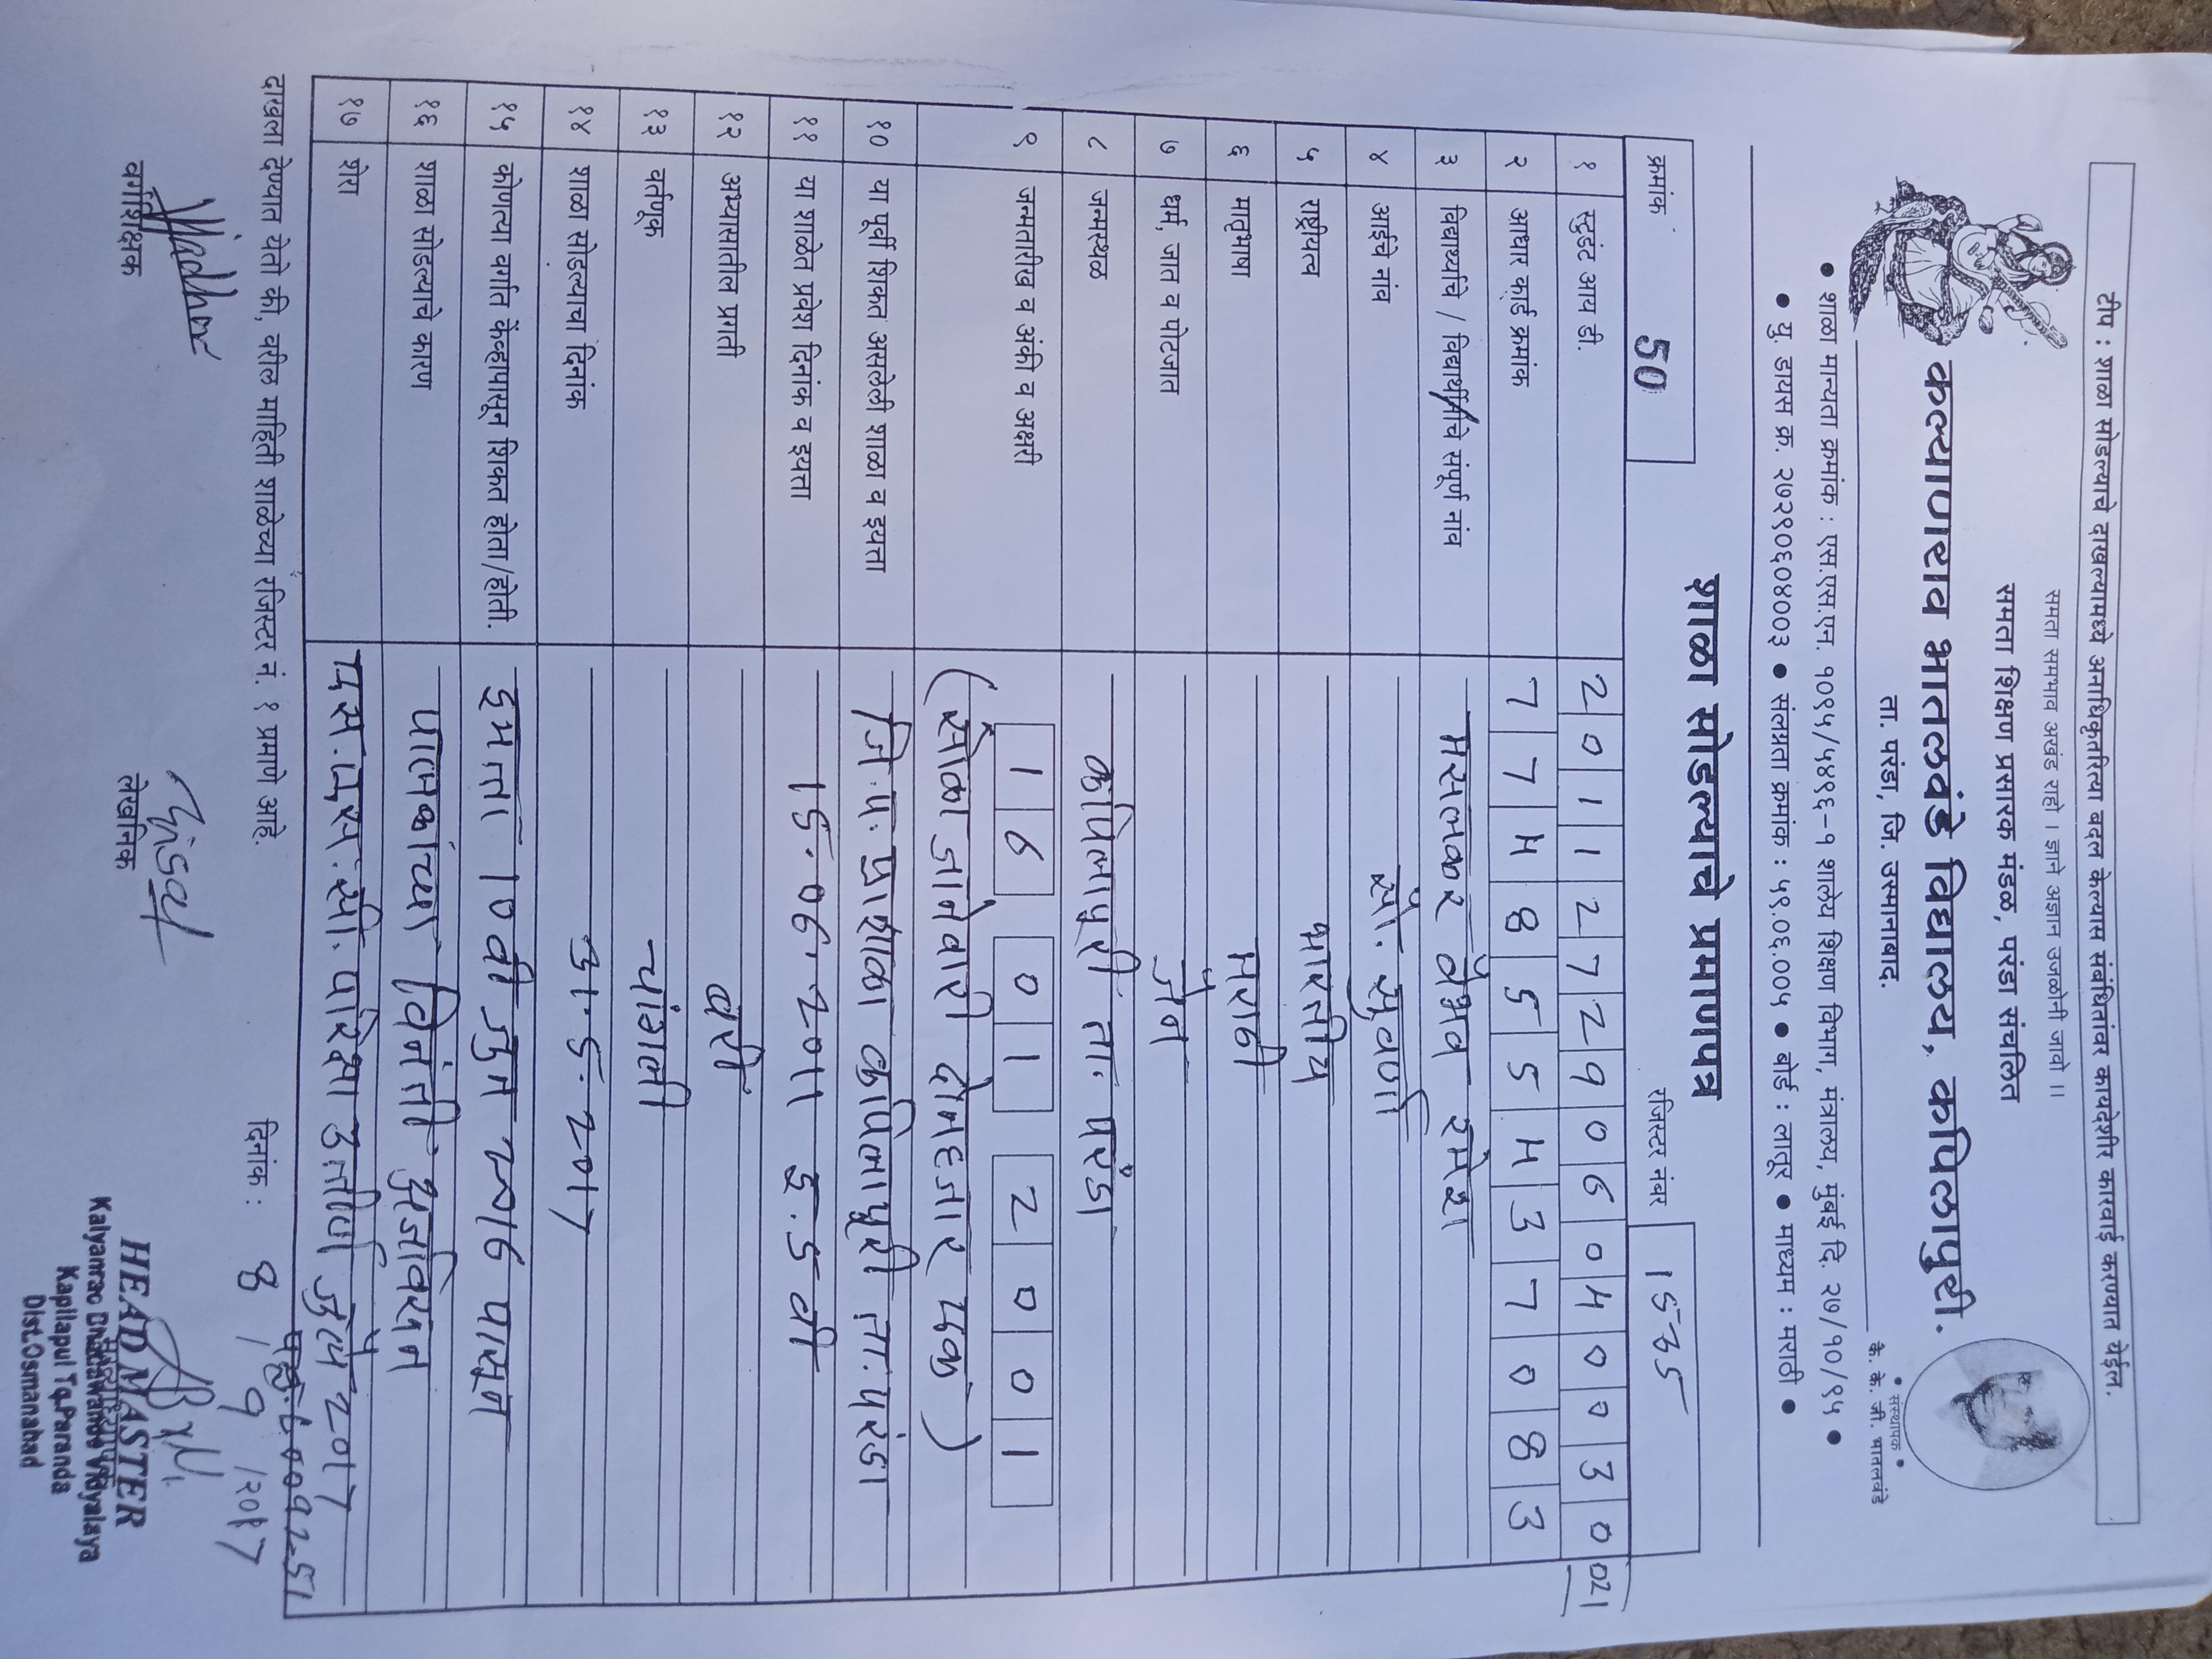 टीप : शाळा सोडल्याचे दाखल्यामध्ये अनाधिकृतरित्या बदल केल्यास संबंधितांवर कायदेशीर कारवाई करण्यात येईल.
समता समभाव अखंड राहो । ज्ञाने अज्ञान उजळोनी जावो ।।
समता शिक्षण प्रसारक मंडळ, परंडा संचलित
कल्याणराव भातलवंडे विद्यालय, कपिलापुरी.
ता. परंडा, जि. उस्मानाबाद.
• संस्थापक •
कै. के. जी. भातलवंडे
● शाळा मान्यता क्रमांक : एस.एस.एन. १०९५/५४९६-१ शालेय शिक्षण विभाग, मंत्रालय, मुंबई दि. २७/१०/९५ ●
● यु डायस क्र. २७२९०६०४००३ ● संलग्नता क्रमांक : ५९.०६.००५ ● बोर्ड : लातूर ● माध्यम : मराठी ●
शाळा सोडल्याचे प्रमाणपत्र
क्रमांक 50 रजिस्टर नंबर 1535
१ स्टुडंट आय डी. 2011272906040030021
२ आधार कार्ड क्रमांक 774855437083
३ विद्यार्थ्याचे / विद्यार्थीनीचे संपूर्ण नांव मसलकर वैभव रमेश
४ आईचे नांव सौ. सुवर्णा
५ राष्ट्रीयत्व भारतीय
६ मातृभाषा मराठी
७ धर्म, जात व पोटजात जैन
८ जन्मस्थळ कपिलापुरी ता. परंडा
९ जन्मतारीख व अंकी व अक्षरी 16 01 2001
(सोळा जानेवारी दोनहजार एक)
१० या पूर्वी शिकत असलेली शाळा व इयत्ता जि.प. प्रशाळा कपिलापुरी ता. परंडा
११ या शाळेत प्रवेश दिनांक व इयत्ता 15.06.2011 इ. 5 वी
१२ अभ्यासातील प्रगती बरी
१३ वर्तणूक चांगली
१४ शाळा सोडल्याचा दिनांक 31.5.2017
१५ कोणत्या वर्गात केंव्हापासून शिकत होता/होती. इयत्ता 10 वी जुन 2016 पासून
१६ शाळा सोडल्याचे कारण पालकांच्या विनंती अर्जावरुन
१७ शेरा एस.एस.सी. परिक्षा उत्तीर्ण जुलै 2017
दाखला देण्यात येतो की, वरील माहिती शाळेच्या रजिस्टर नं. १ प्रमाणे आहे.
दिनांक : 8 / 9 /२०१7
वर्गशिक्षक
लेखनिक
HEAD MASTER
Kalyanrao Bhatalwande Vidyalaya
Kapilapuri Tq.Paranda
Dist.Osmanabad